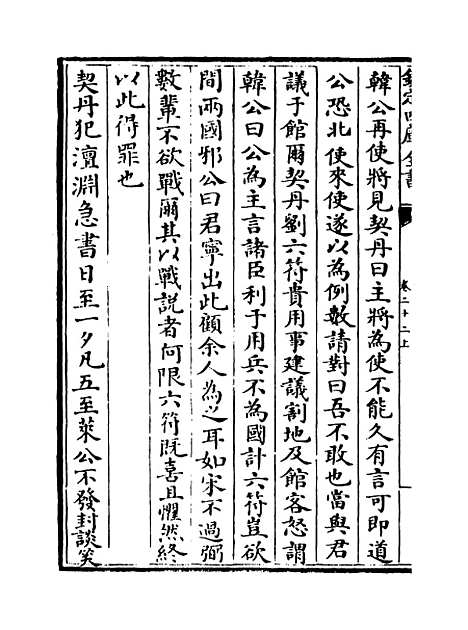 欽定四庫全書
卷二十二上
韓公再使將見契丹曰主將為使不能久有言可即道
公恐北使來使遂以為例數請對曰吾不敢也當與君
議于館爾契丹劉六符貴用事建議割地及館客怒謂
韓公曰公為主言諸臣利于用兵不為國計六符豈欲
間兩國邪公曰君寧出此顧余人為之耳如宋不過弼
數輩不欲戰爾其以戰説者何限六符既喜且懼然終
以此得罪也
契丹犯澶淵急書日至一夕凡五至萊公不發封談笑